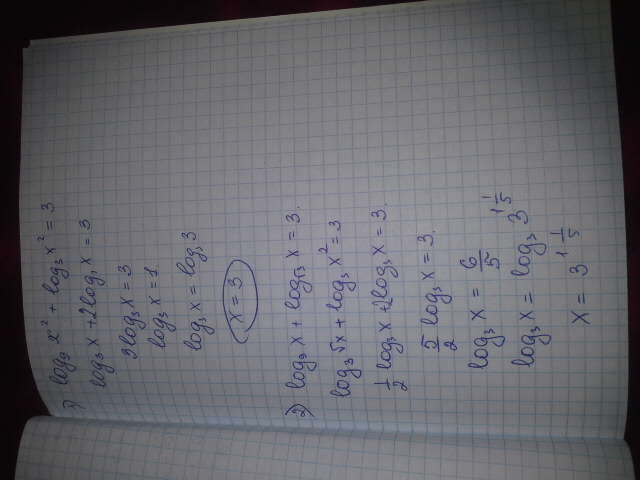 1) log₉ x² + log₃ x² = 3
log₃ x + 2log₃ x = 3
3log₃ x = 3
log₃ x = 1
log₃ x = log₃ 3
x = 3
2) log₉ x + log√3 x = 3.
log₃ √x + log₃ x² = 3
1/2 log₃ x + 2log₃ x = 3.
5/2 log₃ x = 3.
log₃ x = 6/5
log₃ x = log₃ 3^(1 1/5)
x = 3^(1 1/5)